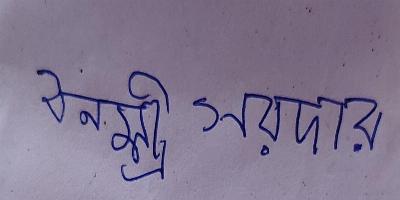 বনশ্রী সরদার